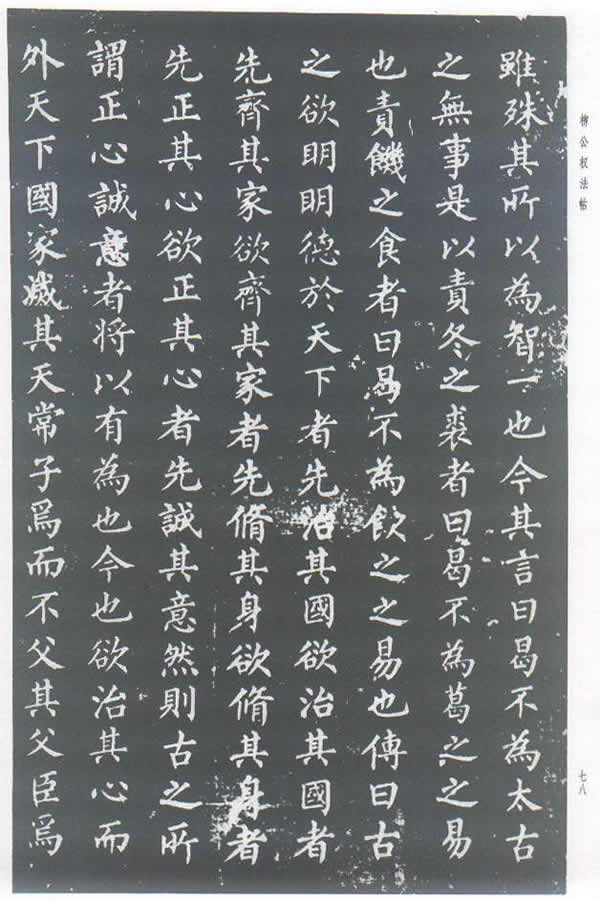 雖殊其所以為智一也今其言曰曷不為太古
之無事是以責冬之裘者曰曷不為葛之之易
也責饑之食者曰曷不為飲之之易也傳曰古
之欲明明德於天下者先治其國欲治其國者
先齊其家欲齊其家者先脩其身欲脩其身者
先正其心欲正其心者先誠其意然則古之所
謂正心誠意者将以有為也今也欲治其心而
外天下國家滅其天常子焉而不父其父臣焉
柳公权法帖
七八